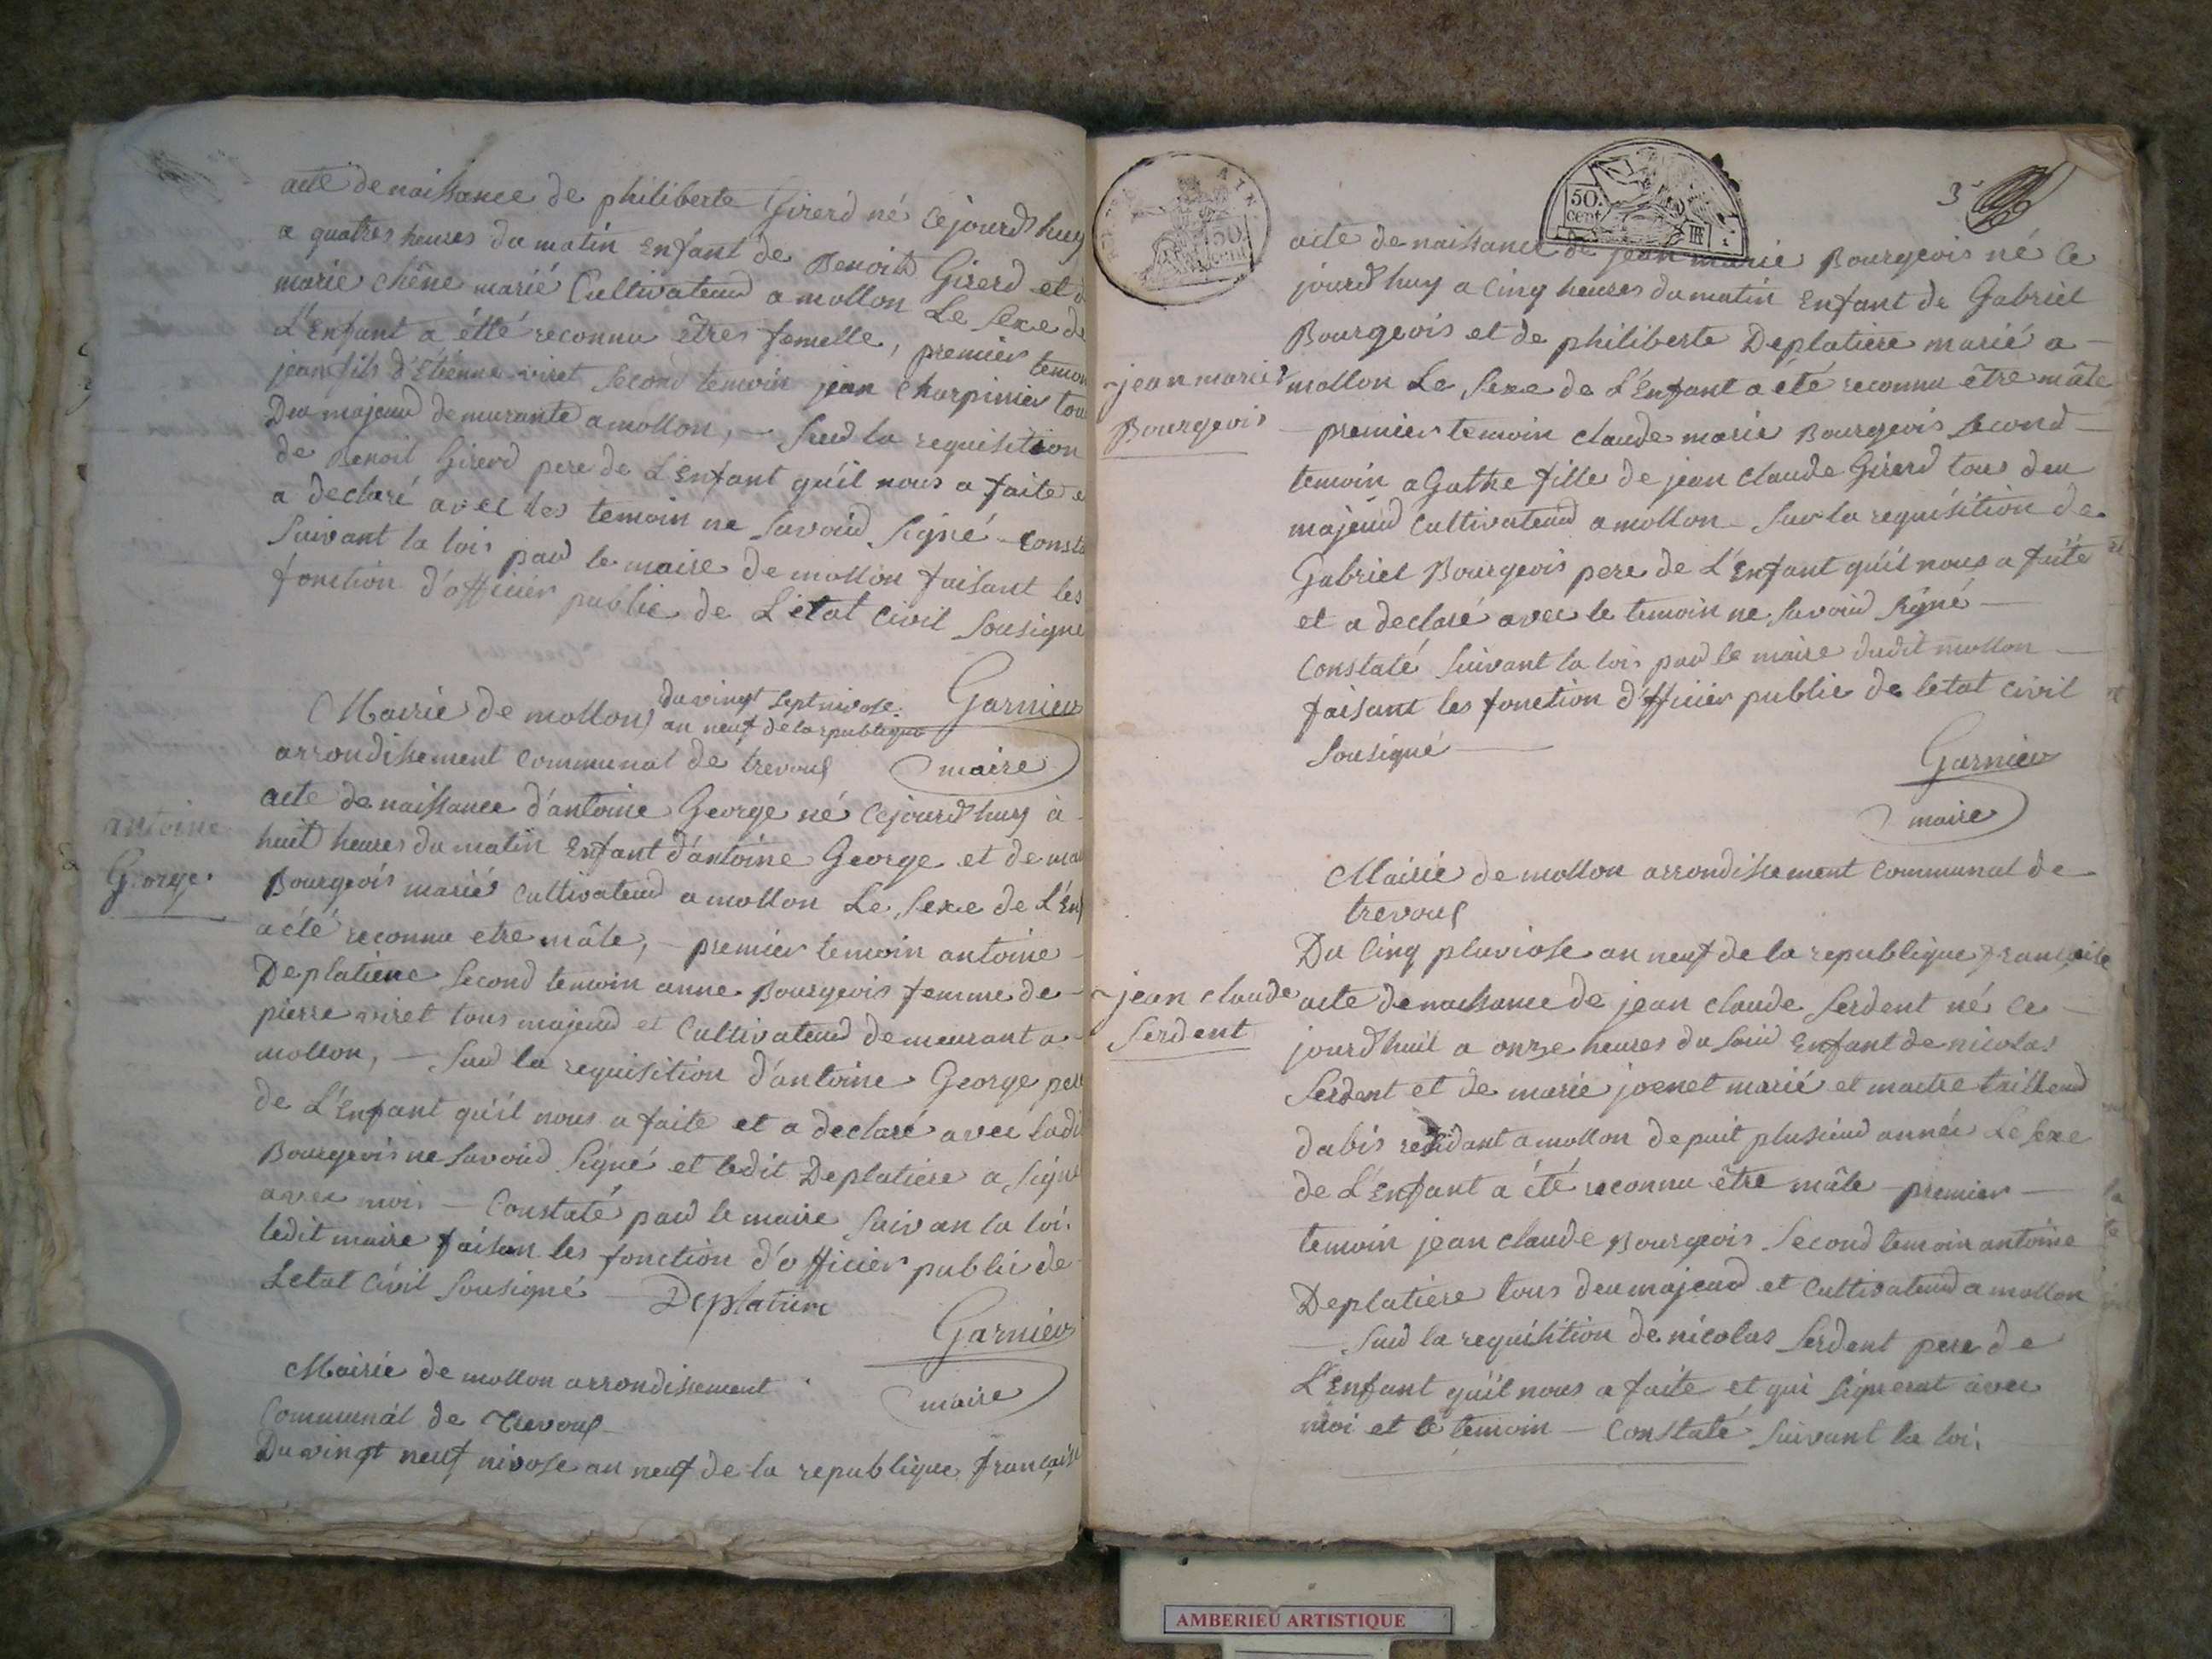 acte de naissance de philiberte Girerd né cejourd'huy
a quatres heures du matin Enfant de Benoit Girerd et d
marie chêne marié Cultivateur a mollon Le Sexe de
L'Enfant a étté reconnu êtres femelle, premier temoin
jean fils d'Etienne viret Second temoin jean charpinier tou
Deu majeur demurante a mollon, — Sur la requisition
de Benoit Girerd pere de L'Enfant qu'il nous a faite e
a declaré avec les temoin ne Savoir Signé Const
Suivant la lois par le maire de mollon faisant les
fonction d'officier public de L'état Civil Sousigne
Garnier
maire
Mairie de mollon du vingt Sept nivose
an neuf de la republique
arrondissement Communal de trevous
antoine
George
acte de naissance d'antoine George né Cejourd'huy à
huit heures du matin Enfant d'antoine George et de mar
Bourgeois mariés cultivateur a mollon Le Sexe de L'Enf
a été reconnu etre mâle, — premier temoin antoine
Deplatiere Second temoin anne Bourgeois femme de
pierre viret tous majeur et Cultivateur demeurant a
mollon, — Sur la requisition d'antoine George pere
de L'Enfant qu'il nous a faite et a declaré avec ladi
Bourgeois ne Savoir Signé et ledit Deplatiere a Signé
avec moi — Constaté par le maire Suivan la loi.
ledit maire faisan les fonction d'officier public de
Letat Civil Sousigné — Deplatiere
Garnier
maire
Mairie de mollon arrondissement
Communal de Trevous
Du vingt neuf nivose an neuf de la republique française
AIN.
50
cent
50.
cent
RF
3
acte de naissance de jean marie Bourgeois né Ce
jourd'huy a Cinq heures du matin Enfant de Gabriel
Bourgeois et de philiberte Deplatiere marié a —
jean marie
Bourgeois
mollon Le Sexe de L'Enfant a été reconnu être mâle
— premier temoin claude marie Bourgeois Second —
temoin aGathe fille de jean claude Girerd tous deu
majeur Cultivateur a mollon — Sur la requisition de
Gabriel Bourgeois pere de L'Enfant qu'il nous a faite
et a declaré avec le temoin ne Savoir Signé —
Constaté Suivant la lois par le maire dudit mollon —
faisant les fonction d'officier public de letat Civil
Sousigné —
Garnier
maire
Mairie de mollon arrondissement Communal de
trevous
Du Cinq pluviose an neuf de la republique française
jean claude
Serdent
acte de naissance de jean claude Serdent né Ce —
jourd'huit a onze heures du Soir Enfant de nicolas
Serdent et de marie joenet marié et maitre tailleur
dabis residant a mollon depuit plusieur année Le Sexe
de L'Enfant a été reconnu être mâle — premier —
temoin jean claude Bourgeois Second temoin antoine
Deplatiere tous deu majeur et Cultivateur a mollon
— Sur la requisition de nicolas Serdent pere de
L'Enfant qu'il nous a faite et qui Signerat avec
moi et le temoin — Constaté Suivant la loi.
AMBERIEU ARTISTIQUE